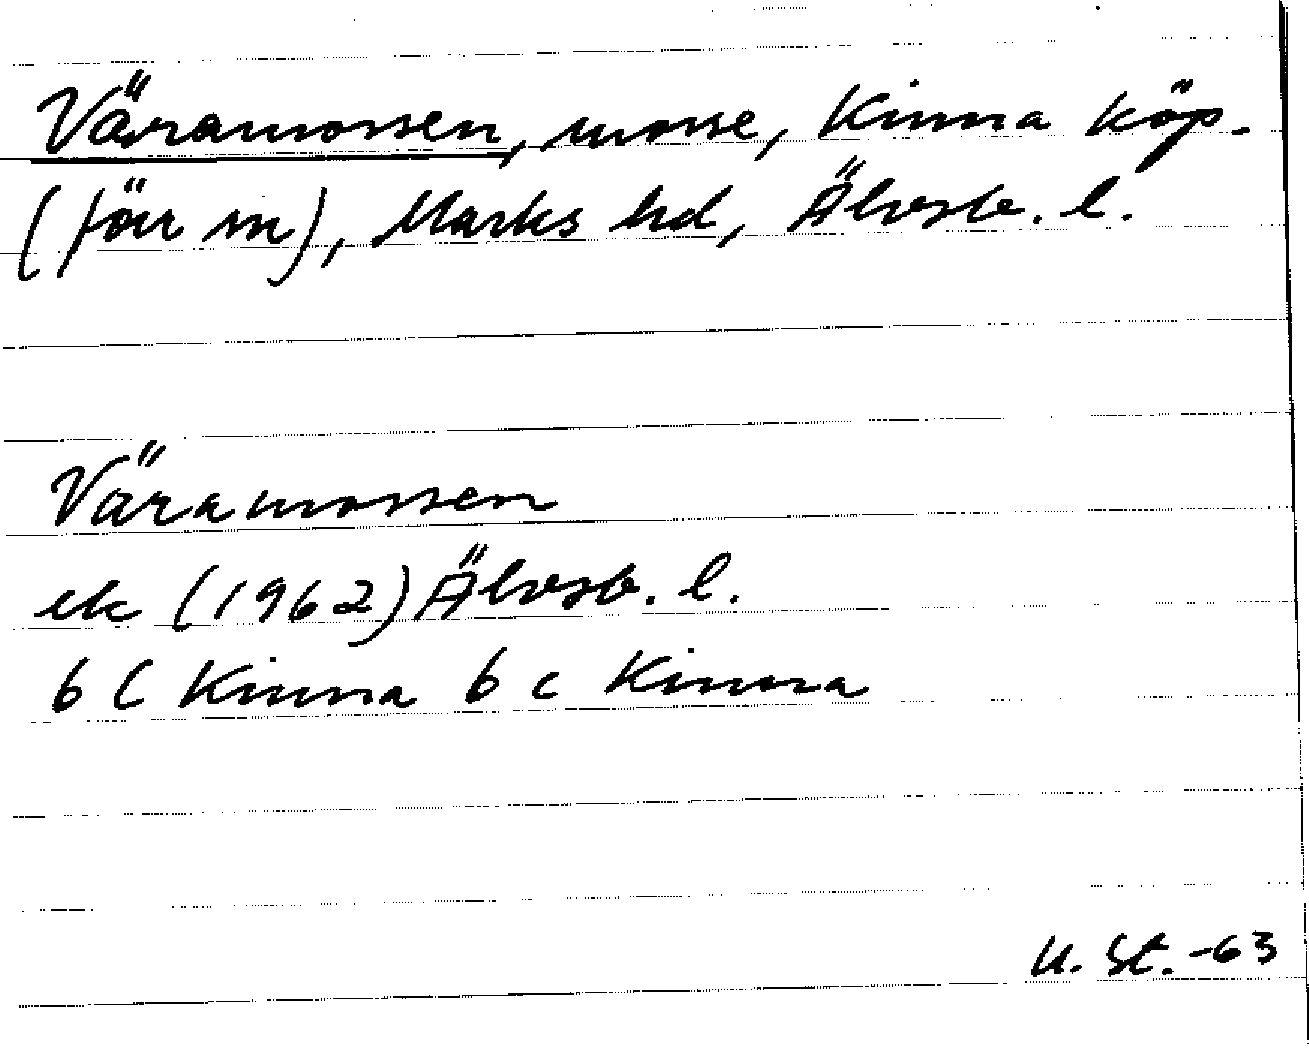 Väramossen, mosse, Kinna köp.
(förr sn), Marks hd, Älvsb. l.
Väramossen
ek (1962) Älvsb. l.
6 C Kinna 6 c Kinna
U. St. -63